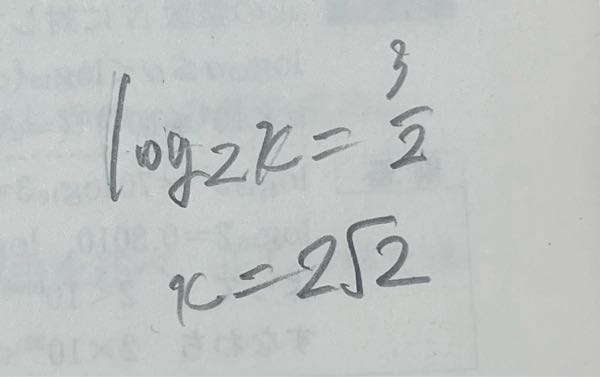 log₂x = 3/2
x = 2√2